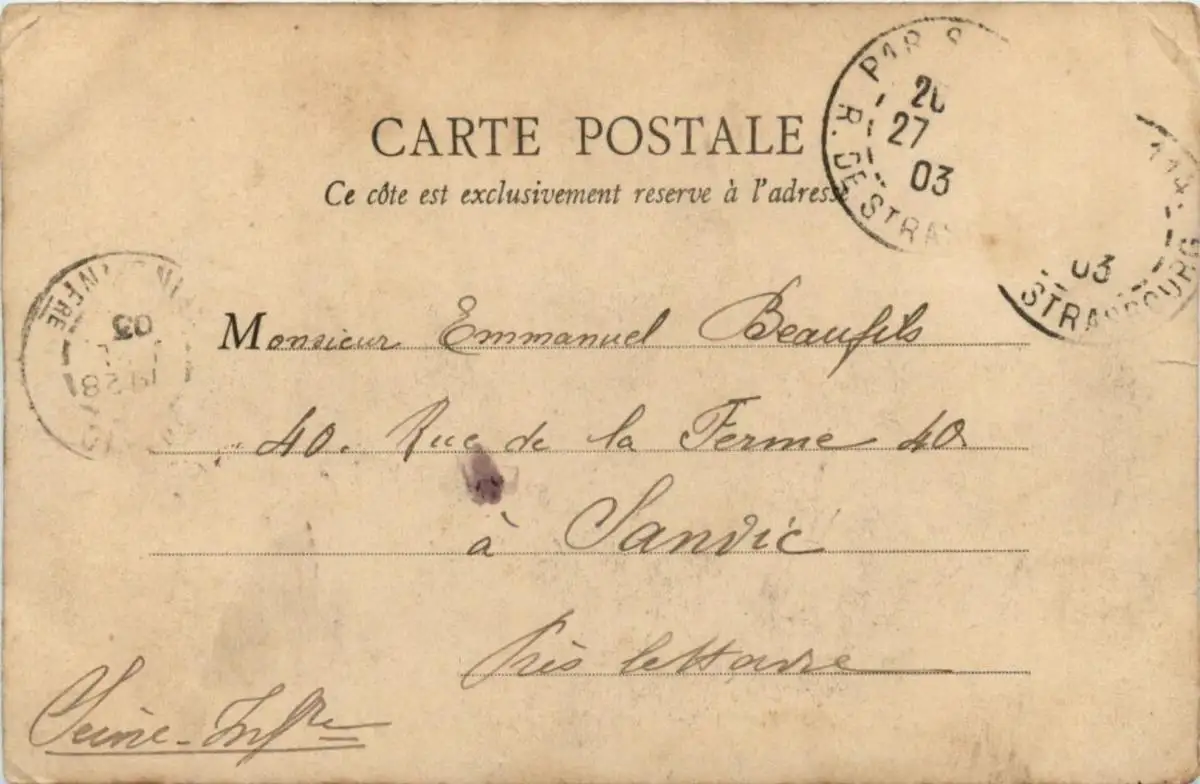 CARTE POSTALE
Ce côte est exclusivement reserve à l'adresse
PARIS
R. DE STRA
20
27
03
114.
03
STRASBOURG
INFRE
03
28
Monsieur Emmanuel Beaufils
40. Rue de la Ferme 40.
à Sanvic
Près le Havre
Seine-Infre